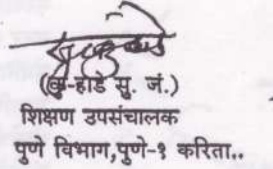 (कु-हाडे सु. जं.)
शिक्षण उपसंचालक
पुणे विभाग,पुणे-१ करिता..